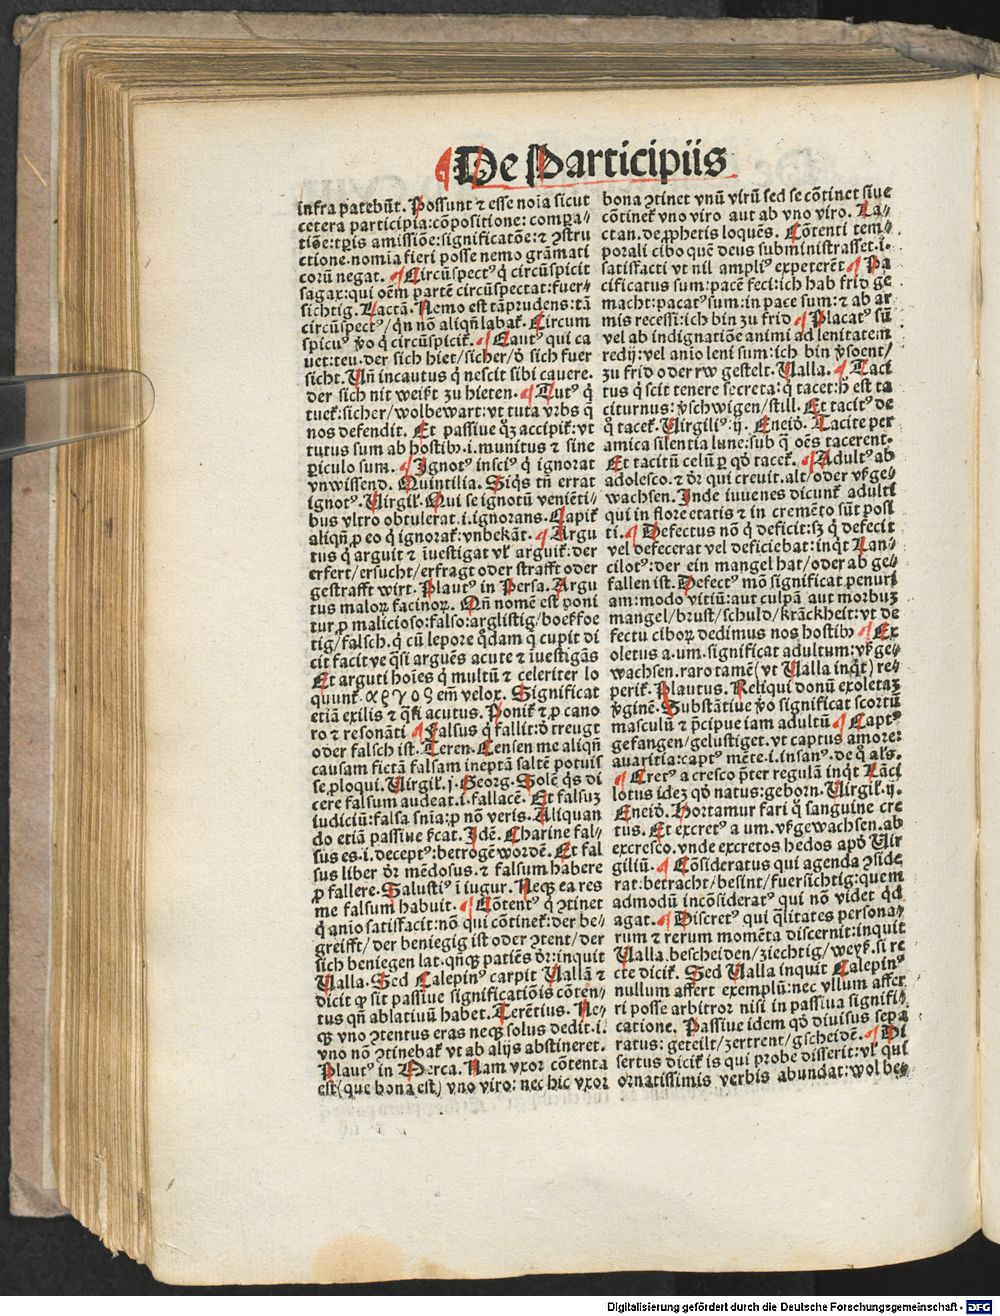 De Participiis
infra patebūt. Possunt ⁊ esse noīa sicut
cetera participia: cōpositione: compara⸗
tiōe: tꝑis amissiōe: significatōe: ⁊ ꝯstru
ctione. nomīa fieri posse nemo grāmati
corū negat. ¶ Circūspectꝰ q̇ circūspicit
sagax: qui oēm partē circūspectat: fuer⸗
sichtig. Lactā. Nemo est tāprudens: tā
circūspectꝰ/ qn̄ nō aliqn̄ labat̄. Circum
spicuꝰ ꝟo q̇ circūspicit̄. ¶ Cautꝰ qui ca
uet: teu. der sich hiet/ sicher/ ď sich fuer
sicht. Vn̄ incautus q̇ nescit sibi cauere.
der sich nit weißt zu hieten. ¶ Tutꝰ q̇
tuet̄: sicher/ wolbewart: vt tuta vrbs q̄
nos defendit. Et passiue qꝫ accipit̄: vt
tutus sum ab hostibꝰ .i. munitus ⁊ sine
ꝑiculo sum. ¶ Ignotꝰ insciꝰ q̇ ignorat
vnwissend. Quintilia. Siqs tn̄ errat
ignotꝰ. Virgil̄. Qui se ignotū veniēti⸗
bus vltro obtulerat .i. ignorans. Capit̄
aliqn̄ ꝓ eo q̇ ignorat̄: vnbekāt. ¶ Argu
tus q̇ arguit ⁊ īuestigat vl̄ arguit̄: der
erfert/ ersucht/ erfragt oder strafft oder
gestrafft wirt. Plautꝰ in Persa. Argu
tus maloꝝ facinoꝝ. Qn̄ nomē est poni
tur ꝓ malicioso: falso: arglistig/ boekfoe
tig/ falsch. q̇ cū lepore qdam q̇ cupit di
cit facit ve q̄si arguēs acute ⁊ iuestigās
Et arguti hoīes q̇ multū ⁊ celeriter lo
quunt̄. αργος em̄ velox. Significat
etiā exilis ⁊ q̄si acutus. Ponit̄ ⁊ ꝓ cano
ro ⁊ resonāti ¶ Falsus q̇ fallit: ď treugt
oder falsch ist. Teren. Censen me aliqn̄
causam fictā falsam ineptā saltē potuis
se ꝓloqui. Virgil̄. j. Georg. Solē q̇s di
cere falsum audeat .i. fallacē. Et falsuꝫ
iudiciū: falsa snīa: ꝓ nō veris. Aliquan
do etiā passiue ꝑcat̄. Idē. Charine fal⸗
sus es .i. deceptꝰ: betrogē wordē. Et fal
sus liber ďr mēdosus. ⁊ falsum habere
ꝓ fallere. Salustiꝰ ī iugur. Neqꝫ ea res
me falsum habuit. ¶ Cōtentꝰ q̇ ꝯtinet
q̇ anio satisfacit: nō qui cōtinet̄: der be⸗
greifft/ der beniegig ist oder ꝯtent/ der
sich beniegen lat. qn̄qꝫ patiēs ďr: inquit
Valla. Sed Calepinꝰ carpit Vallā ⁊
dicit ꝙ sit passiue significatiōis cōten⸗
tus qn̄ ablatiuū habet. Terētius. Ne⸗
qꝫ vno ꝯtentus eras neqꝫ solus dedit .i.
vno nō ꝯtinebat̄ vt ab alijs abstineret.
Plautꝰ in Merca. Nam vxor cōtenta
est (que bona est) vno viro: nec hic vxor
bona ꝯtinet vnū virū sed se cōtinet siue
cōtinet̄ vno viro aut ab vno viro. La⸗
ctan. de ꝓphetis loquēs. Cōtenti tem⸗
porali cibo quē deus subministrasset .i.
satisfacti vt nil ampliꝰ expeterēt ¶ Pa
cificatus sum: pacē feci: ich hab frid ge
macht: pacatꝰ sum: in pace sum: ⁊ ab ar
mis recessi: ich bin zu frid ¶ Placatꝰ sū
vel ab indignatiōe animi ad lenitatem
redij: vel anio leni sum: ich bin ꝟsoent/
zu frid oder rw gestelt. Valla. ¶ Taci
tus q̇ scit tenere secreta: q̇ tacet: h̄ est ta
citurnus: ꝟschwigen/ still. Et tacitꝰ de
q̇ tacet̄. Virgiliꝰ. ij. Eneiď. Tacite per
amica silentia lune: sub q̄ oēs tacerent.
Et tacitū celū ꝓ qď tacet̄. ¶ Adultꝰ ab
adolesco. ⁊ ďr qui creuit. alt/ oder vßge⸗
wachsen. Inde iuuenes dicunt̄ adulti
qui in flore etatis ⁊ in cremēto sūt posi
ti. ¶ Defectus nō q̇ deficit: sꝫ q̇ defecit
vel defecerat vel deficiebat: inq̇t Lan⸗
cilotꝰ: der ein mangel hat/ oder ab ge⸗
fallen ist. Defectꝰ mō significat penuri
am: modo vitiū: aut culpā aut morbuꝫ
mangel/ brust/ schuld/ krāckheit: vt de
fectu ciboꝝ dedimus nos hostibꝰ ¶ Ex
oletus .a. um. significat adultum: vßge⸗
wachsen. raro tamē (vt Valla inq̇t) re⸗
perit̄. Plautus. Reliqui donū exoletaꝫ
ꝟginē. Substātiue ꝟo significat scortū
masculū ⁊ p̄cipue iam adultū ¶ Captꝰ
gefangen/ gelustiget. vt captus amore:
auaritia: captꝰ mēte .i. insanꝰ. de q̇ al̄s.
¶ Cretꝰ a cresco p̄ter regulā inq̇t Lāci
lotus ideꝫ qď natus: geborn. Virgil̄. ij.
Eneiď. Hortamur fari q̇ sanguine cre
tus. Et excretꝰ a um. vßgewachsen. ab
excresco. vnde excretos hedos apď Vir
giliū. ¶ Cōsideratus qui agenda ꝯside
rat: betracht/ besint/ fuersichtig: quem
admodū incōsideratꝰ qui nō videt qd
agat. ¶ Discretꝰ qui q̄litates persona⸗
rum ⁊ rerum momēta discernit: inquit
Valla. bescheiden/ ziechtig/ weyß. si re
cte dicit̄. Sed Valla inquit Calepinꝰ
nullum affert exemplū: nec vllum affer
ri posse arbitror nisi in passiua signifi⸗
catione. Passiue idem qď diuisus sepa
ratus: geteilt/ zertrent/ gscheidē. ¶ Di
sertus dicit̄ is qui probe disserit: vl̄ qui
ornatissimis verbis abundat: wol be⸗
Digitalisierung gefördert durch die Deutsche Forschungsgemeinschaft - DFG